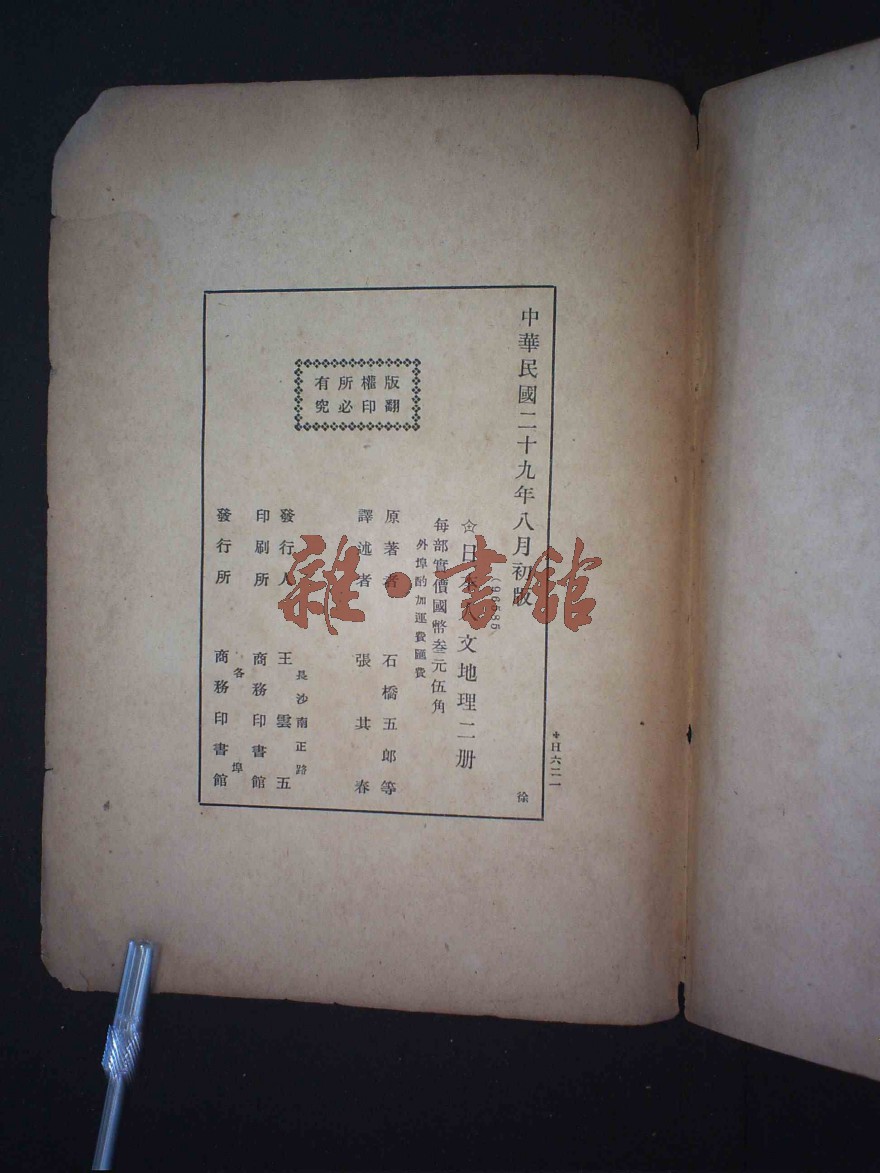 中華民國二十九年八月初版
(96585
☆日本人文地理二册
每部實價國幣叁元伍角
外埠酌加運費匯費
原著者 石橋五郎等
譯述者 張其春
發行人 王雲五
長沙南正路
印刷所 商務印書館
各埠
發行所 商務印書館
版權所有
翻印必究
徐
雜·書館